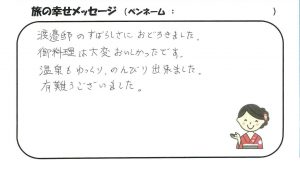 旅の幸せメッセージ (ペンネーム： )
渡邉邸のすばらしさに おどろきました。
御料理は大変おいしかったです。
温泉もゆっくり、のんびり出来ました。
有難うございました。